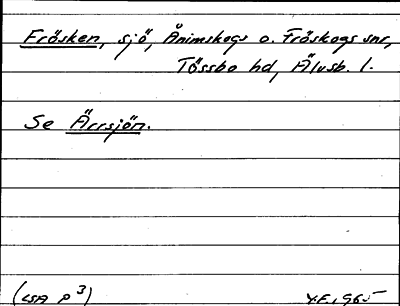 Frösken, sjö, Ånimskogs o. Fröskogs snr,
Tössbo hd, Älvsb. l.
Se Ärrsjön.
(LSA P 3)
Y.F. 1965